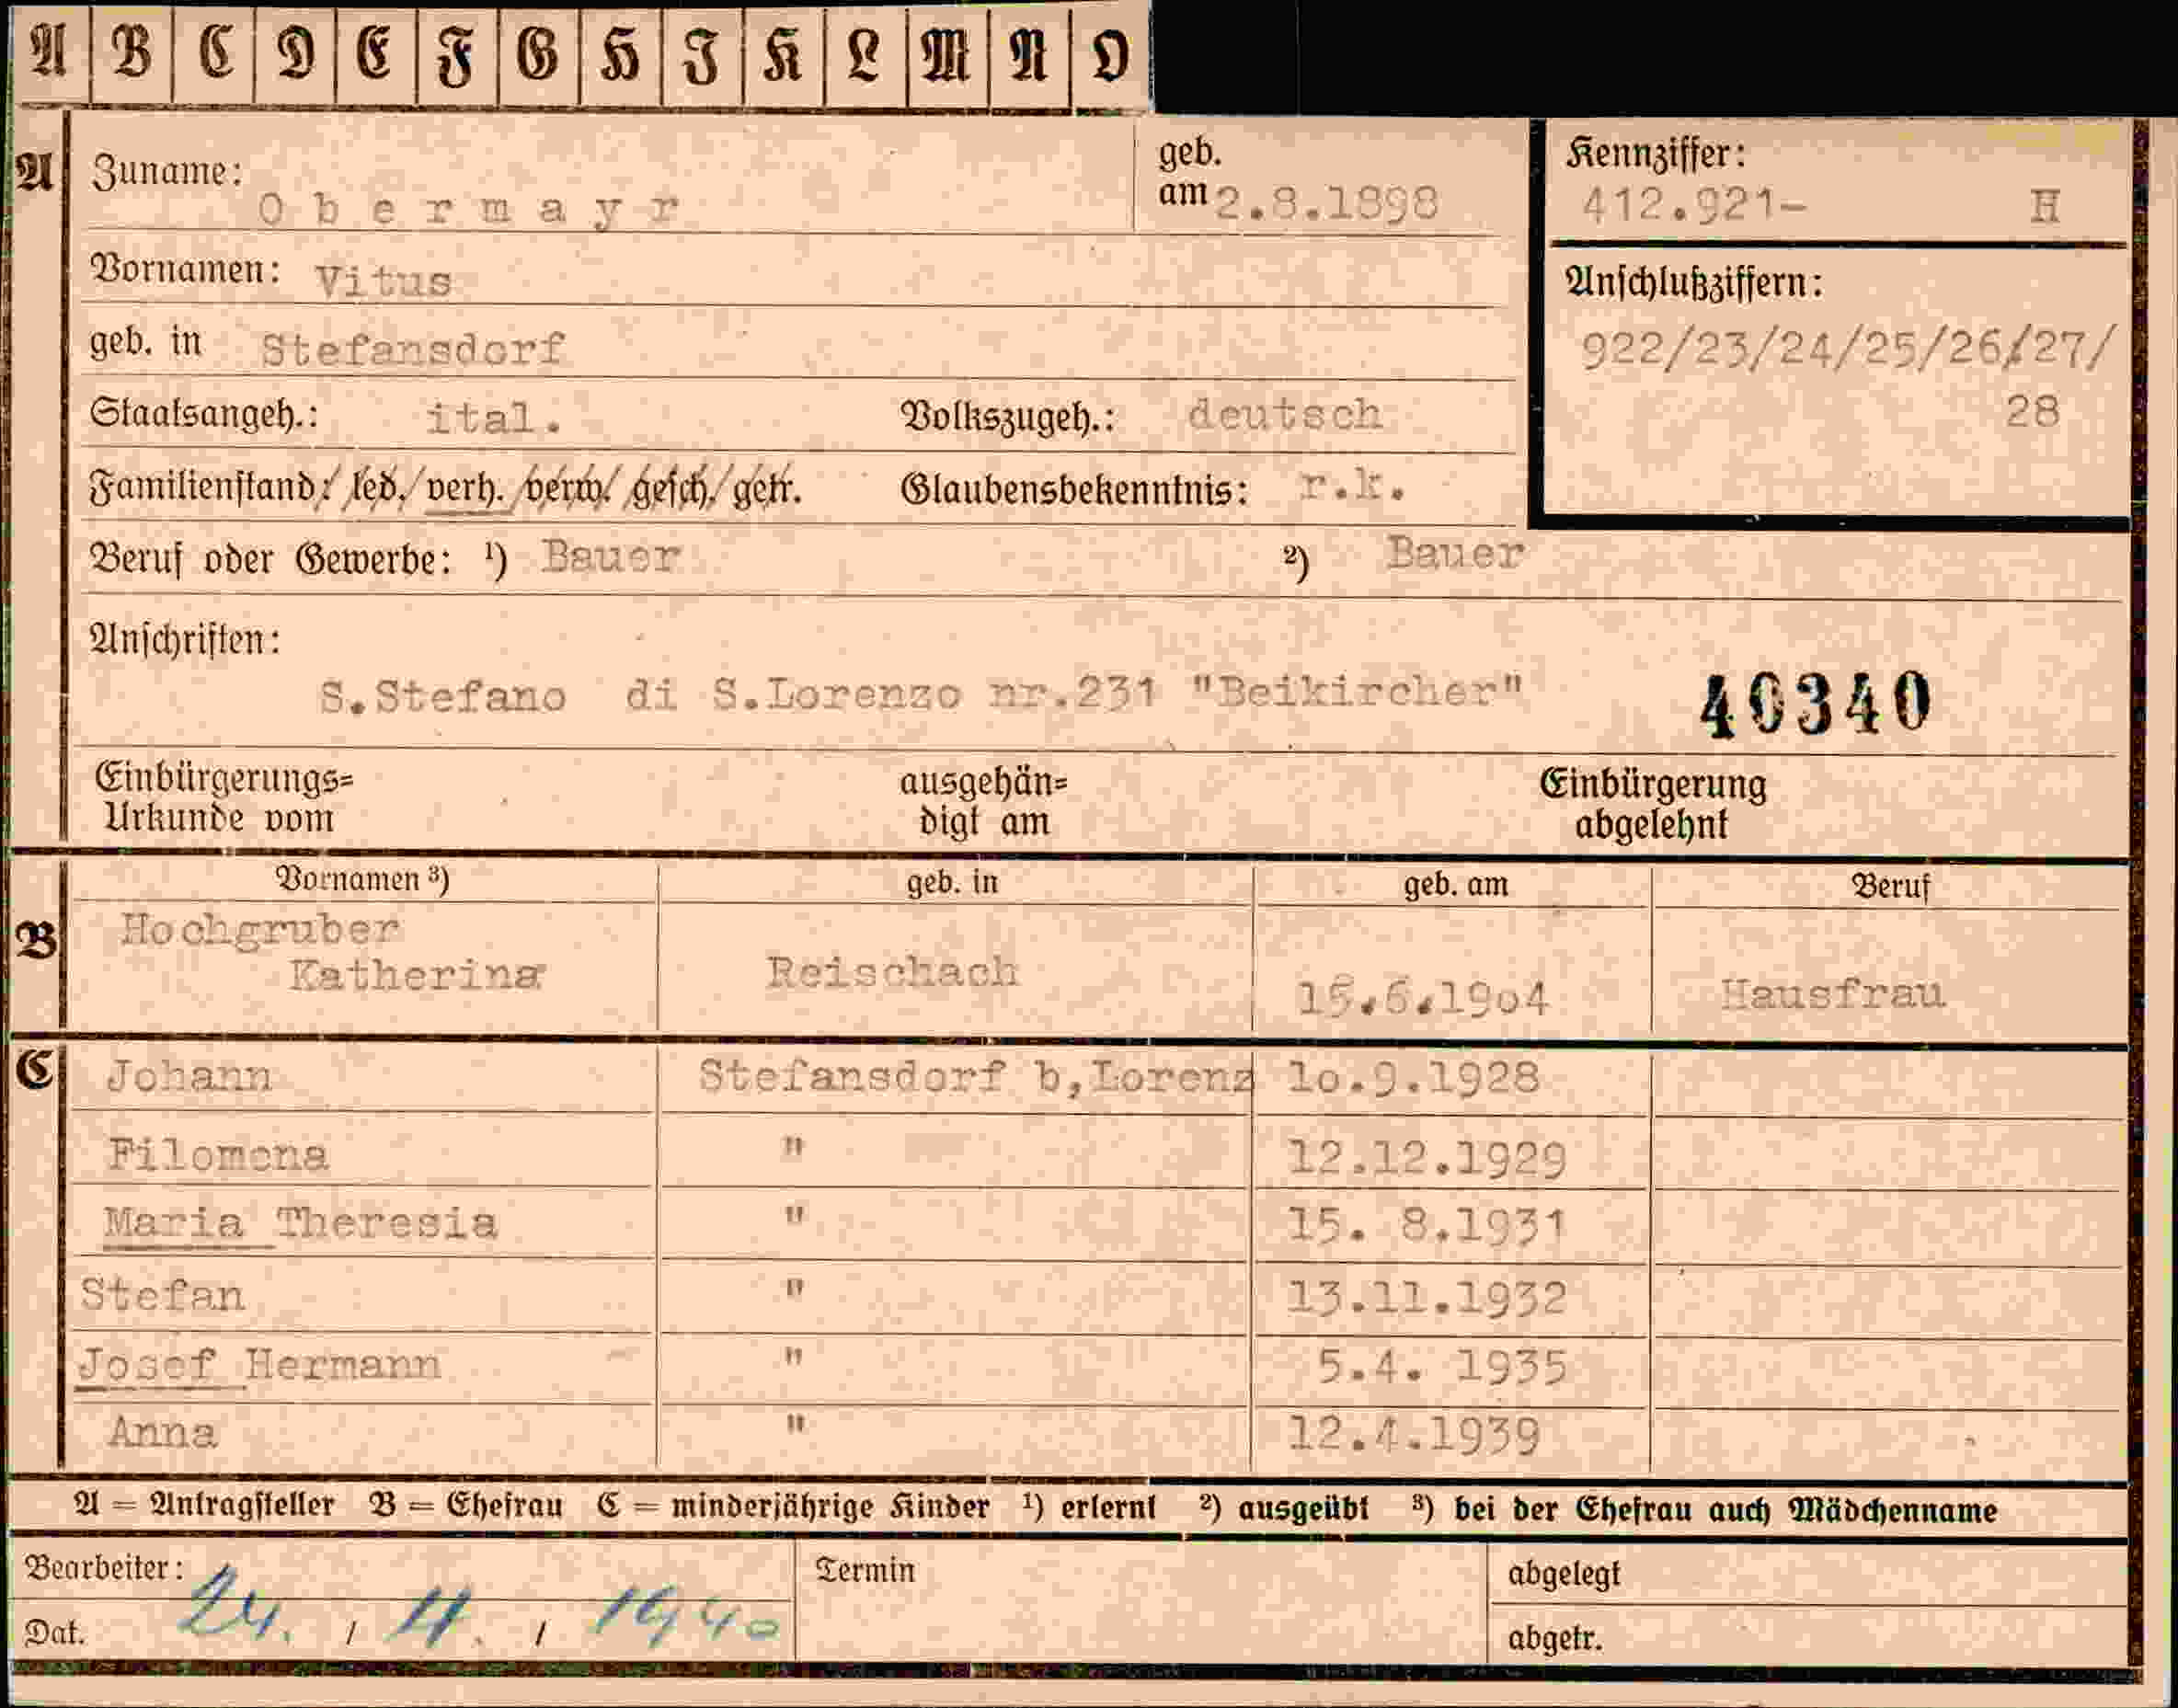 A B C D E F G H I K L M N O
A Zuname: Obermayr geb. am 2.8.1898 Kennziffer: 412.921- H
Vornamen: Vitus Anschlußziffern:
geb. in Stefansdorf 922/23/24/25/26/27/
Staatsangeh.: ital. Volkszugeh.: deutsch 28
Familienstand: led. verh. verw. gesch. getr. Glaubensbekenntnis: r.k.
Beruf oder Gewerbe: ¹) Bauer ²) Bauer
Anschriften:
S.Stefano di S.Lorenzo nr.231 "Beikircher" 40340
Einbürgerungs= ausgehän= Einbürgerung
Urkunde vom digt am abgelehnt
Vornamen ³) geb. in geb. am Beruf
B Hochgruber
Katherina Reischach 15.6.1904 Hausfrau
C Johann Stefansdorf b,Lorenz 10.9.1928
Filomena " 12.12.1929
Maria Theresia " 15. 8.1931
Stefan " 13.11.1932
Josef Hermann " 5.4. 1935
Anna " 12.4.1939
A = Antragsteller B = Ehefrau C = minderjährige Kinder ¹) erlernt ²) ausgeübt ³) bei der Ehefrau auch Mädchenname
Bearbeiter: Termin abgelegt
Dat. 24. / 4. / 1940 abgetr.